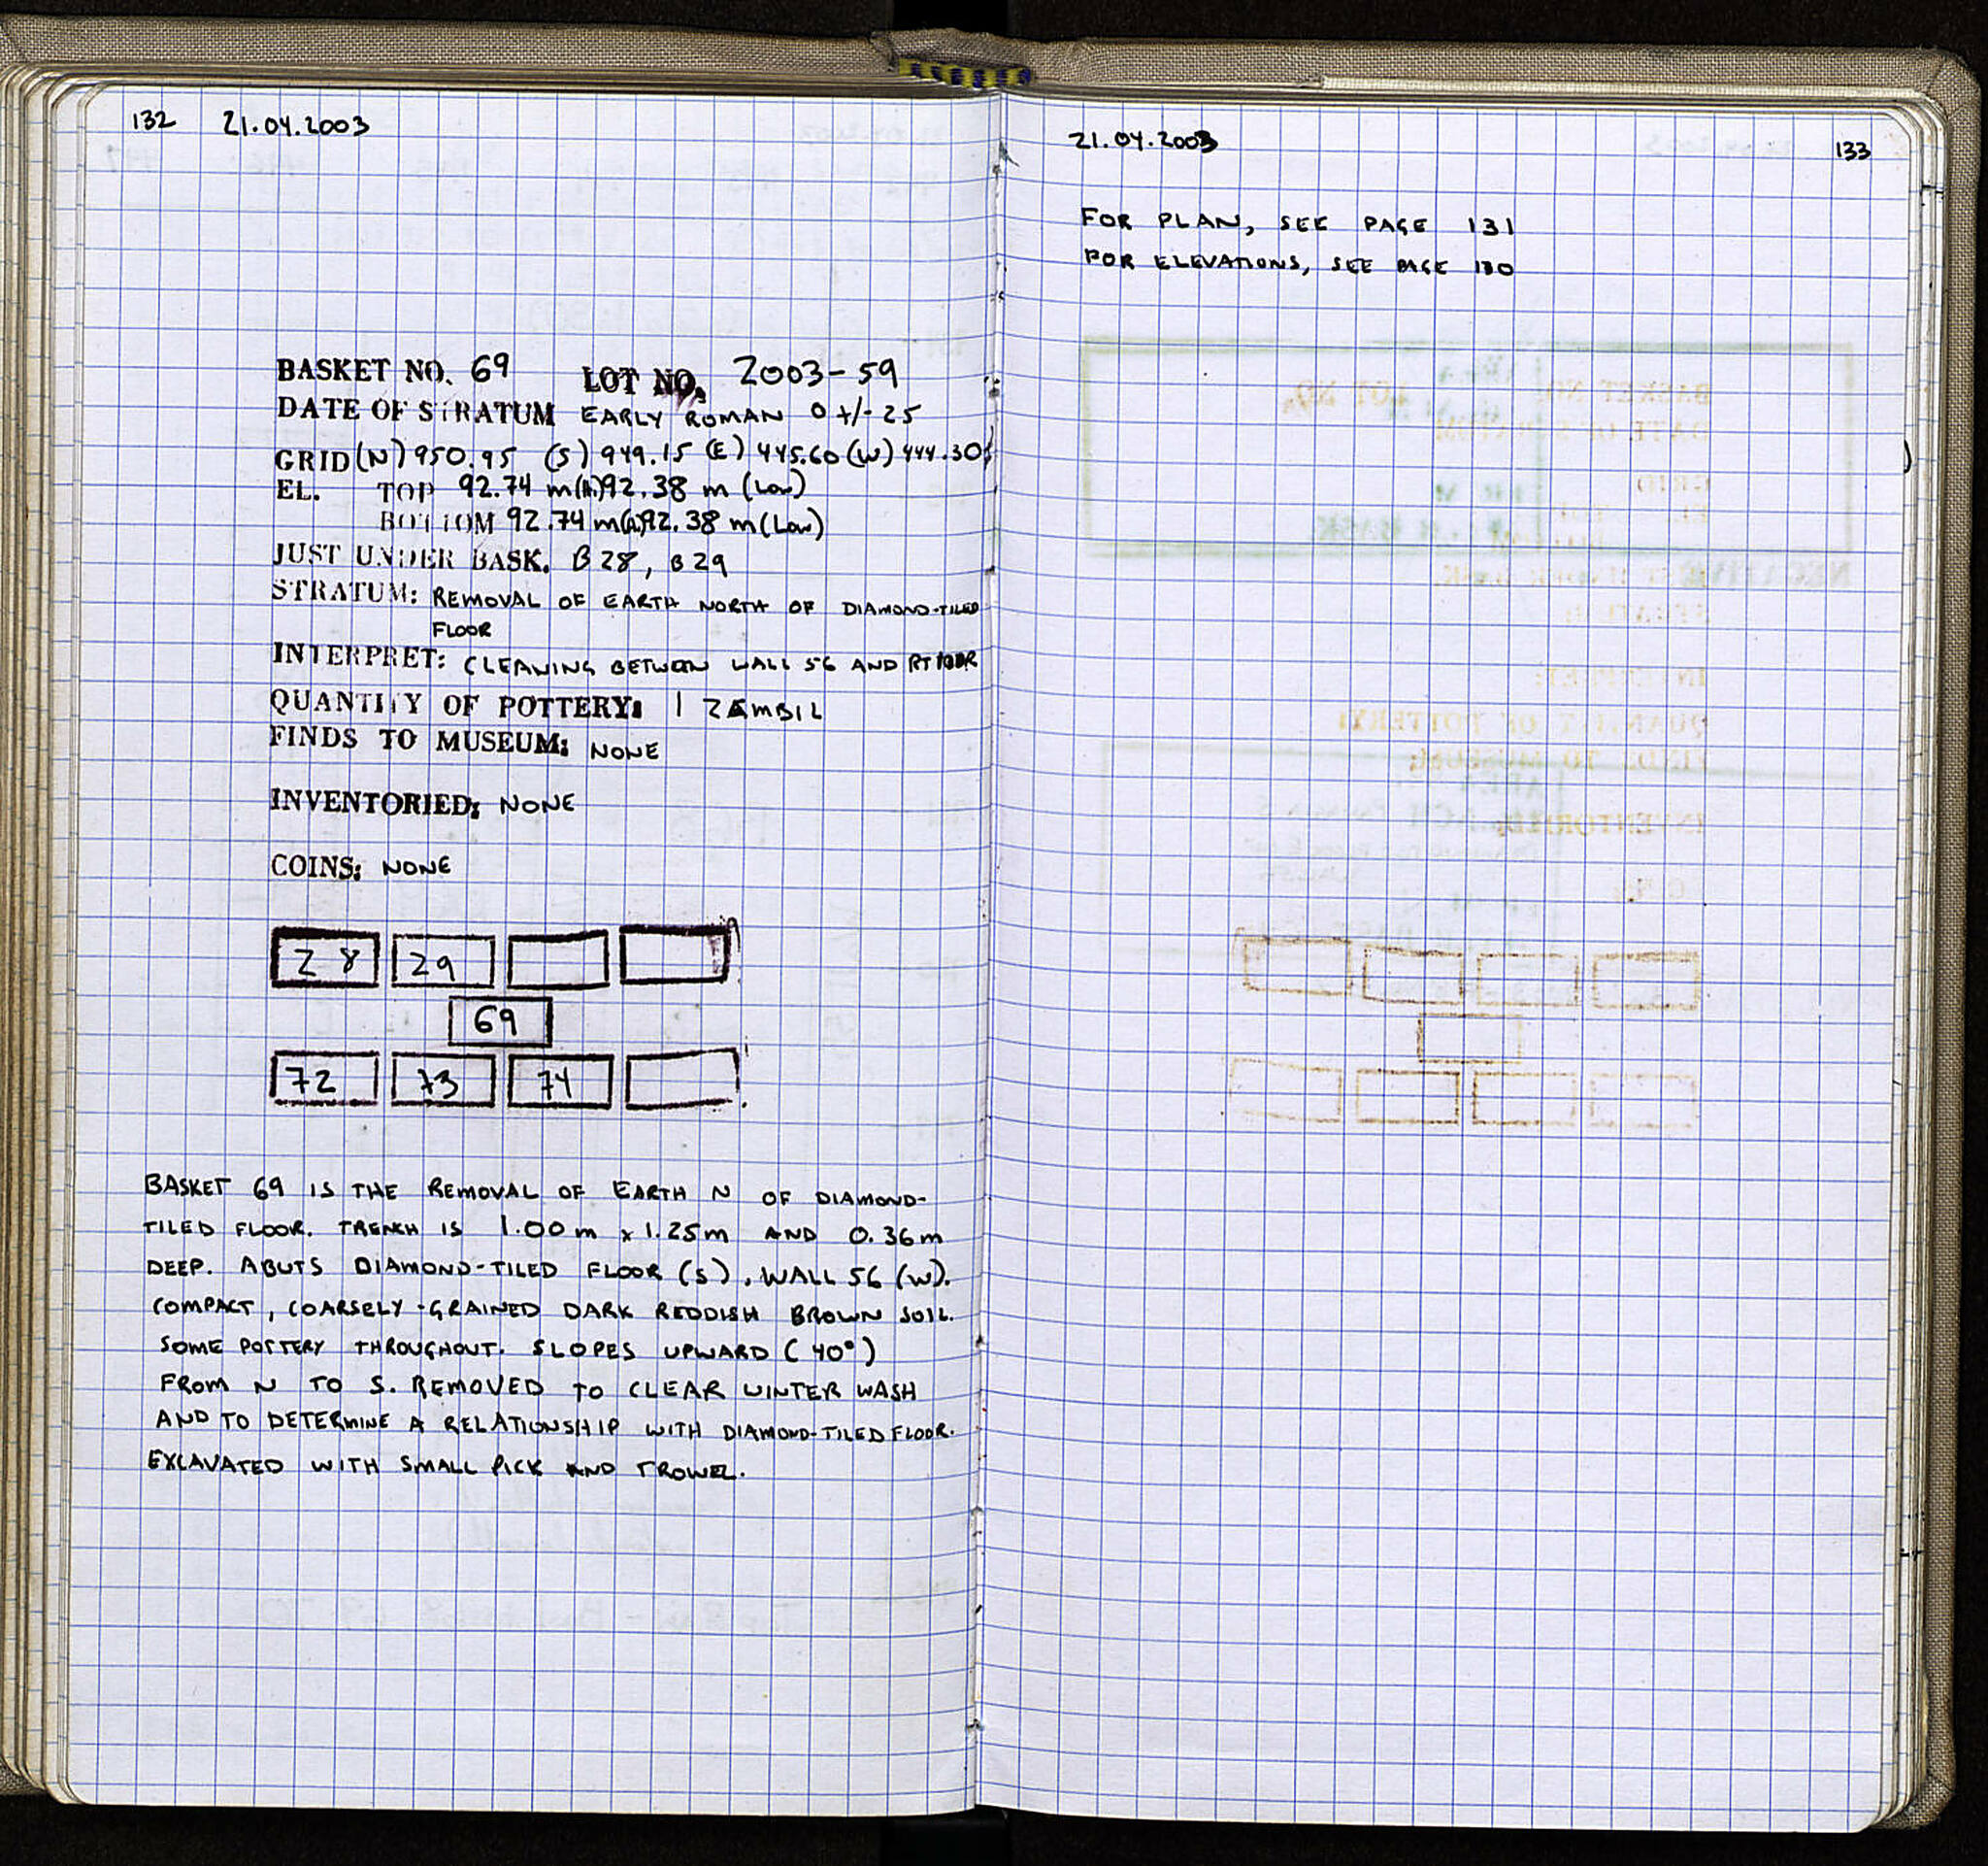 132 21.04.2003
BASKET NO. 69 LOT NO. 2003-59
DATE OF STRATUM EARLY ROMAN 0 +/- 25
GRID (N) 950.95 (S) 949.15 (E) 445.60 (W) 444.30
EL. TOP 92.74 m(h)92.38 m (Low)
BOTTOM 92.74 m(h)92.38 m (Low)
JUST UNDER BASK. B28, B29
STRATUM: REMOVAL OF EARTH NORTH OF DIAMOND-TILED
FLOOR
INTERPRET: CLEANING BETWEEN WALL 56 AND
QUANTITY OF POTTERY: 1 ZEMBIL
FINDS TO MUSEUM: NONE
INVENTORIED: NONE
COINS: NONE
28 29
69
72 73 74
BASKET 69 IS THE REMOVAL OF EARTH N OF DIAMOND-
TILED FLOOR. TRENCH IS 1.00 m x 1.25 m AND 0.36 m
DEEP. ABUTS DIAMOND-TILED FLOOR (S), WALL 56 (W).
COMPACT, COARSELY-GRAINED DARK REDDISH BROWN SOIL.
SOME POTTERY THROUGHOUT. SLOPES UPWARD (40°)
FROM N TO S. REMOVED TO CLEAR WINTER WASH
AND TO DETERMINE A RELATIONSHIP WITH DIAMOND-TILED FLOOR.
EXCAVATED WITH SMALL PICK AND TROWEL.
21.04.2003 133
FOR PLAN, SEE PAGE 131
FOR ELEVATIONS, SEE PAGE 130